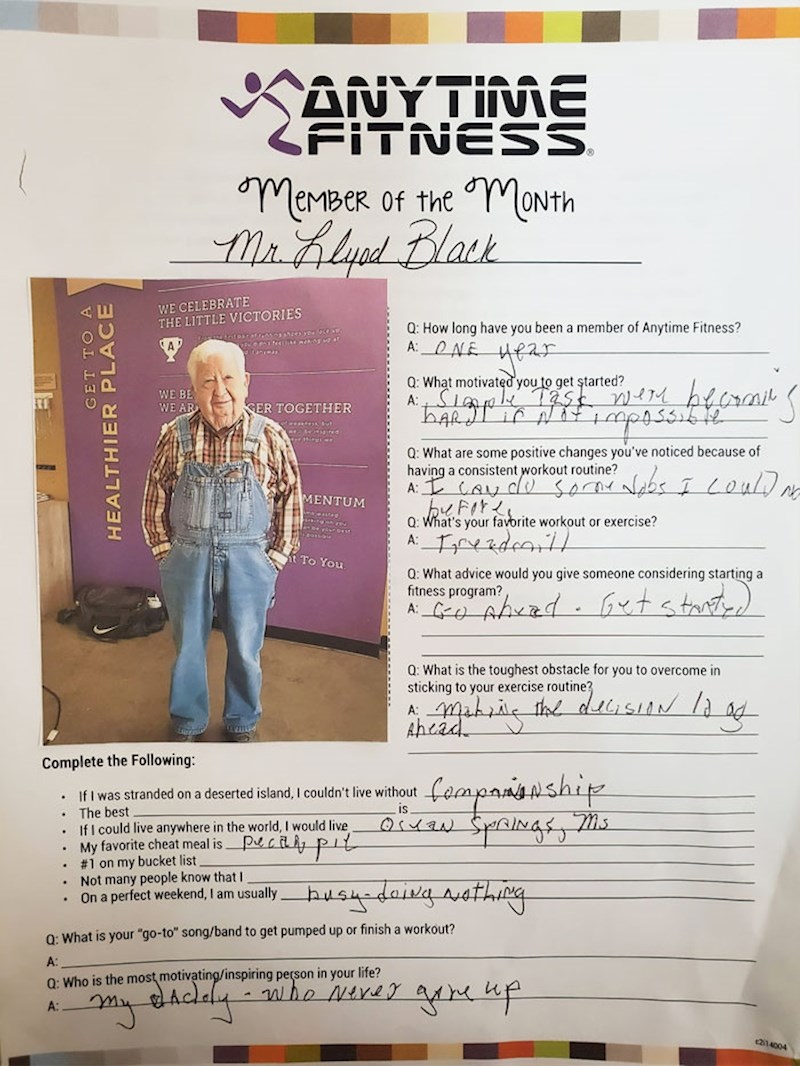 ANYTIME
FITNESS®
MEMBER OF THE MONTH
Mr. Llyod Black
GET TO A
HEALTHIER PLACE
WE CELEBRATE
THE LITTLE VICTORIES
A
WE BE
WE AR GER TOGETHER
MENTUM
it To You.
Q: How long have you been a member of Anytime Fitness?
A: ONE year
Q: What motivated you to get started?
A: Simple Task were becoming
hARD if Not impossible
Q: What are some positive changes you've noticed because of
having a consistent workout routine?
A: I CAN do some Jobs I could no
before,
Q: What's your favorite workout or exercise?
A: Treadmill
Q: What advice would you give someone considering starting a
fitness program?
A: Go Ahead. Get started
Q: What is the toughest obstacle for you to overcome in
sticking to your exercise routine?
A: Making the decision to go
Ahead
Complete the Following:
• If I was stranded on a deserted island, I couldn't live without Companionship
• The best is
• If I could live anywhere in the world, I would live Ocean Springs, Ms
• My favorite cheat meal is Pecan pie
• #1 on my bucket list
• Not many people know that I
• On a perfect weekend, I am usually busy-doing Nothing
Q: What is your "go-to" song/band to get pumped up or finish a workout?
A:
Q: Who is the most motivating/inspiring person in your life?
A: My dAddy - who Never gave up
c2i14004